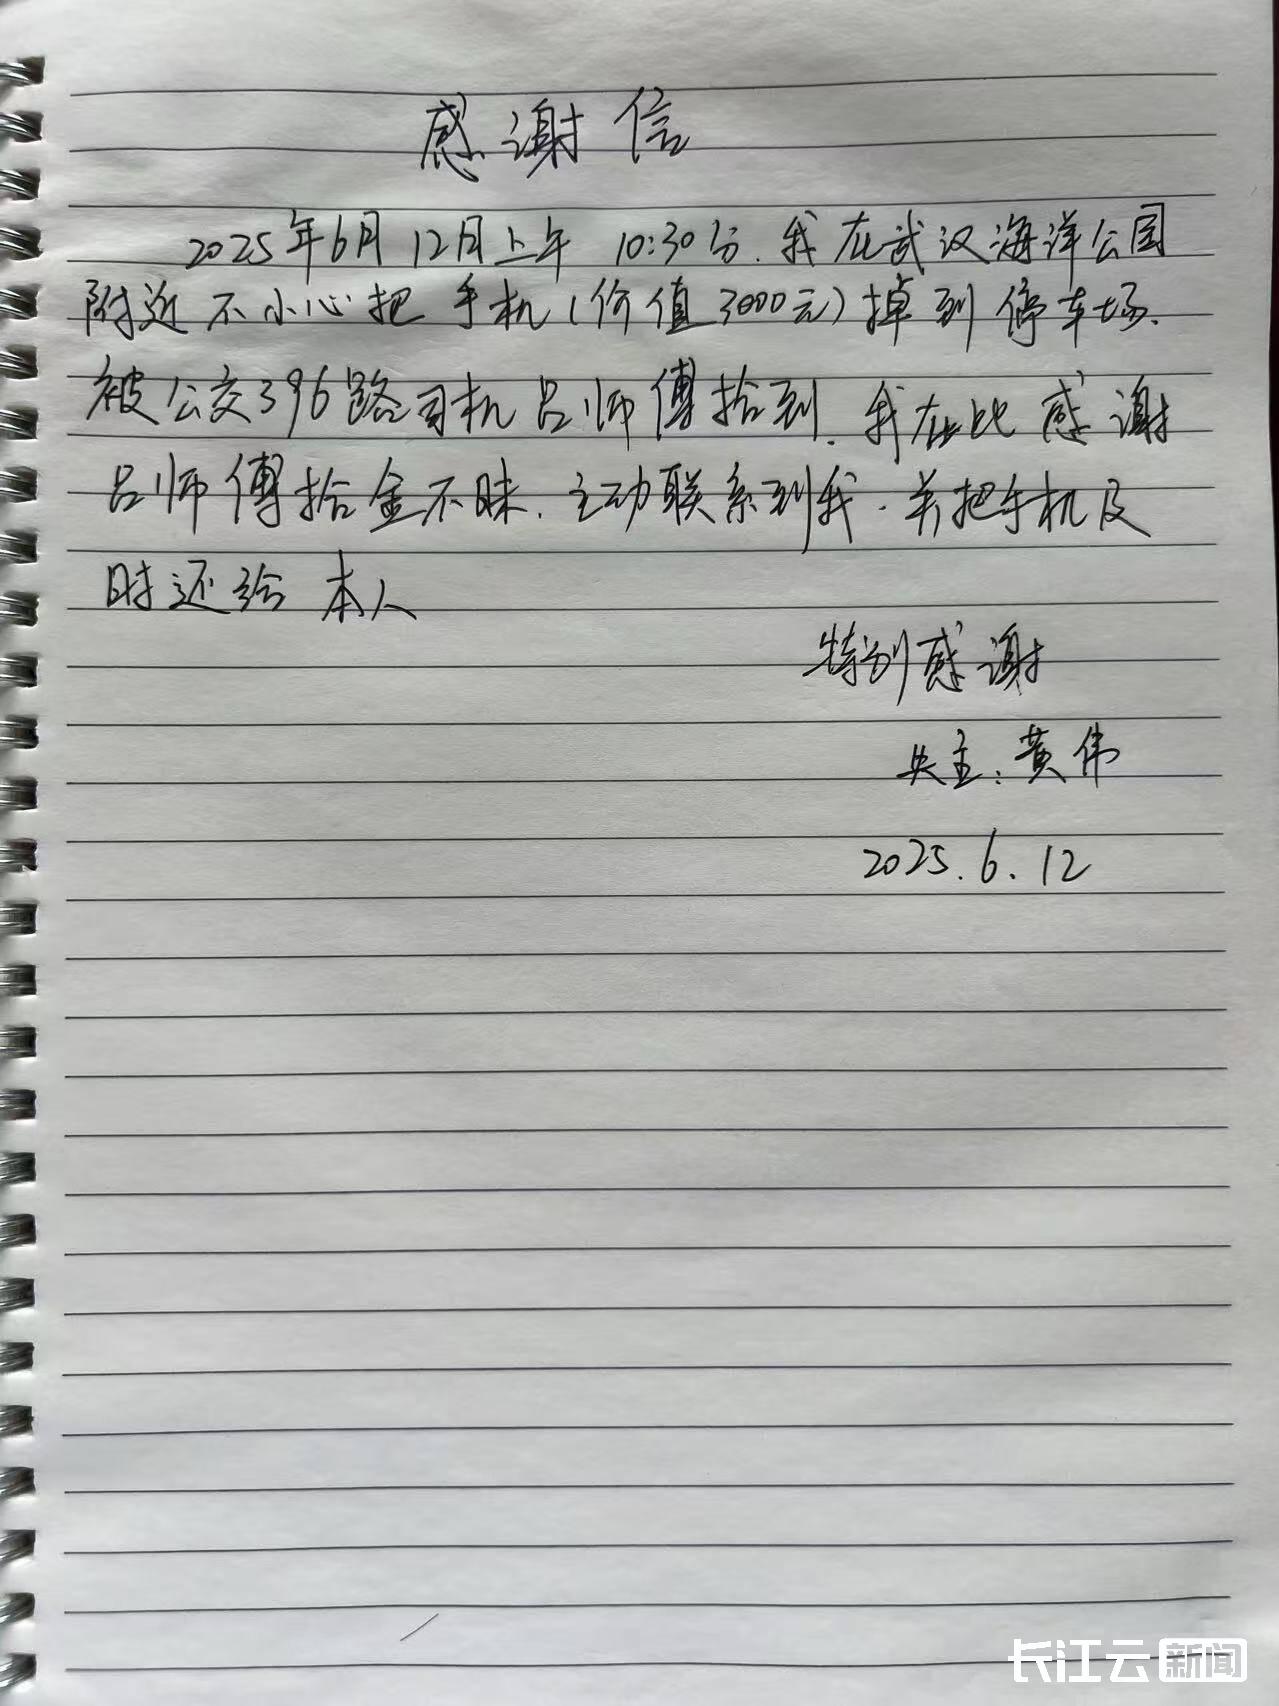 感谢信
2025年6月12日上午 10:30分.我在武汉海洋公园
附近不小心把手机(价值3000元)掉到停车场.
被公交396路司机吕师傅拾到.我在此感谢
吕师傅拾金不昧.主动联系到我.并把手机及
时还给本人
特别感谢
失主:黄伟
2025.6.12
长江云新闻